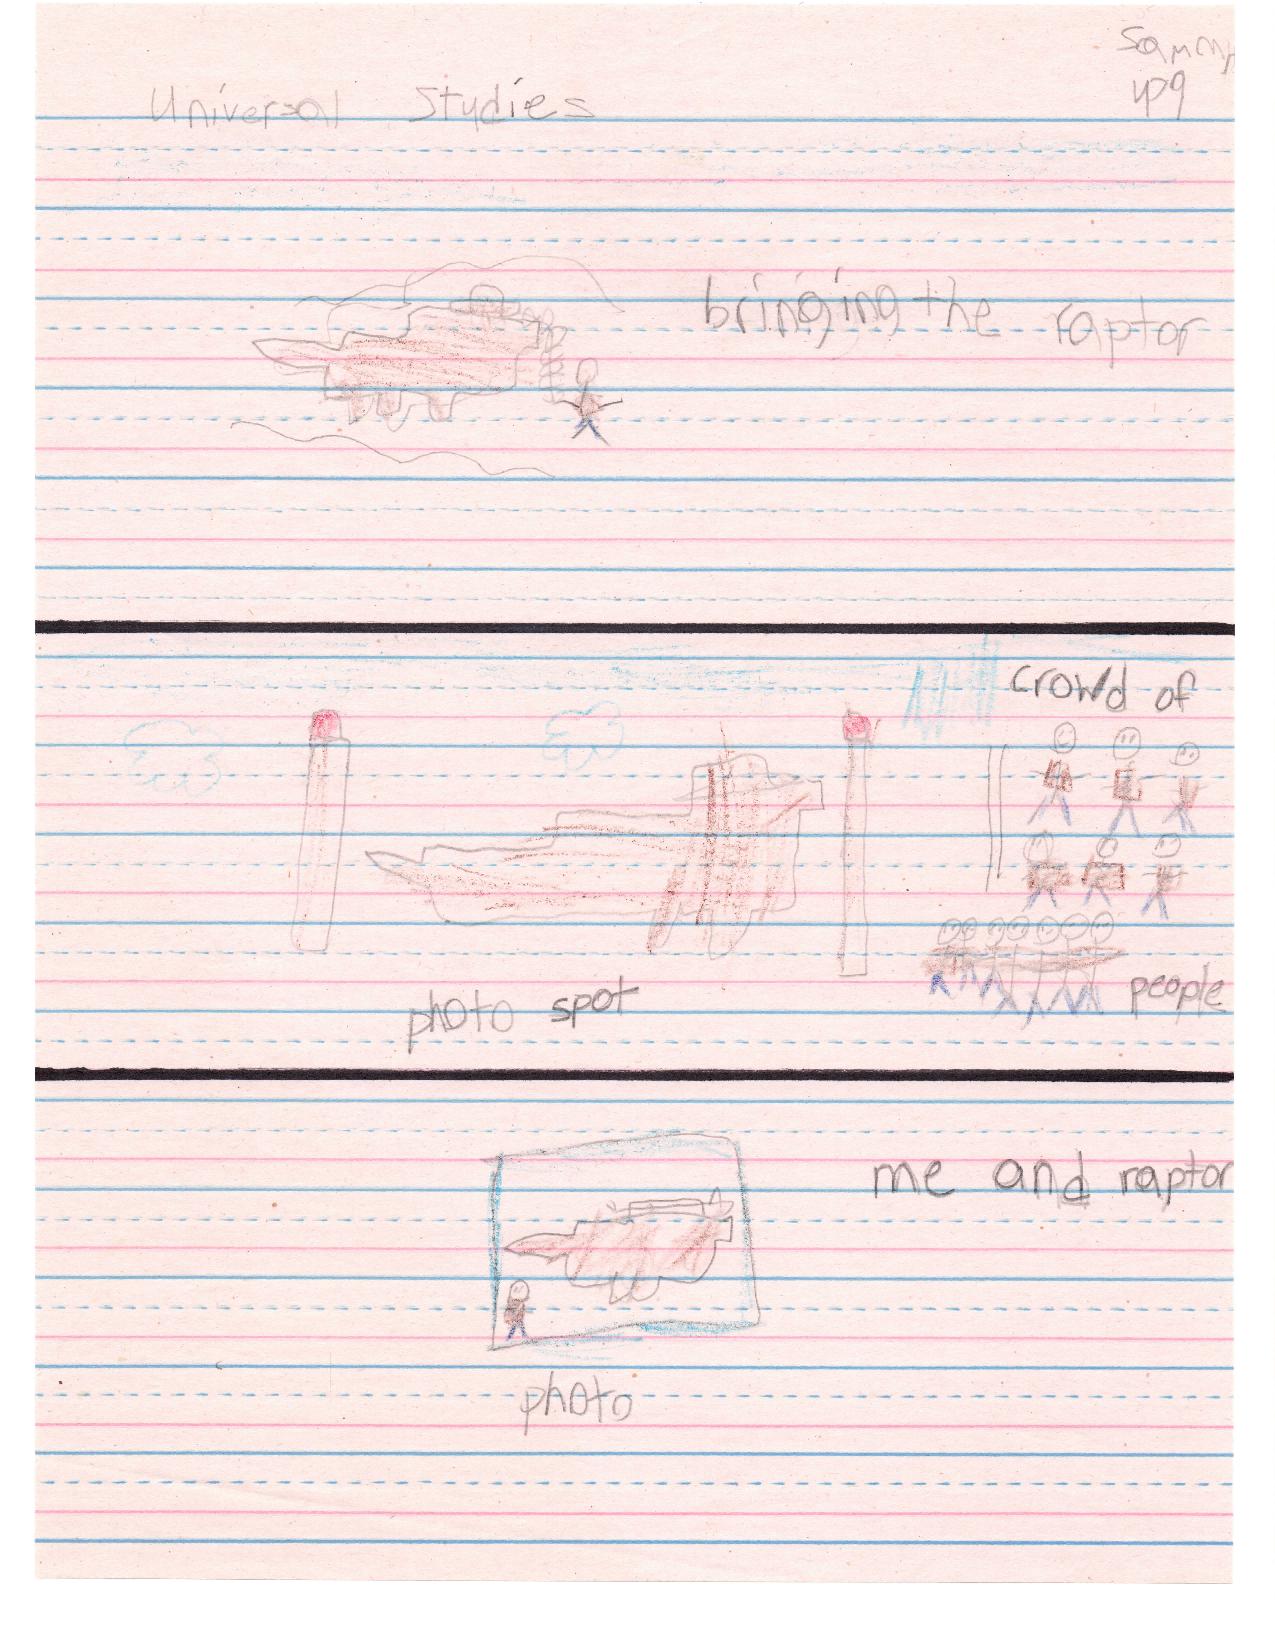 Sammy
yp9
Universal Studies
bringing the raptor
crowd of
people
photo spot
me and raptor
photo